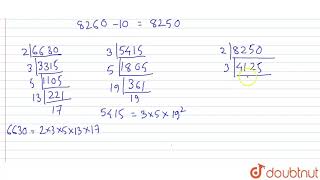 8260 - 10 = 8250
2 6630
3 3315
5 1105
13 221
17
3 5415
5 1805
19 361
19
2 8250
3 4125
5415 = 3×5×19²
6630 = 2×3×5×13×17
doubtnut